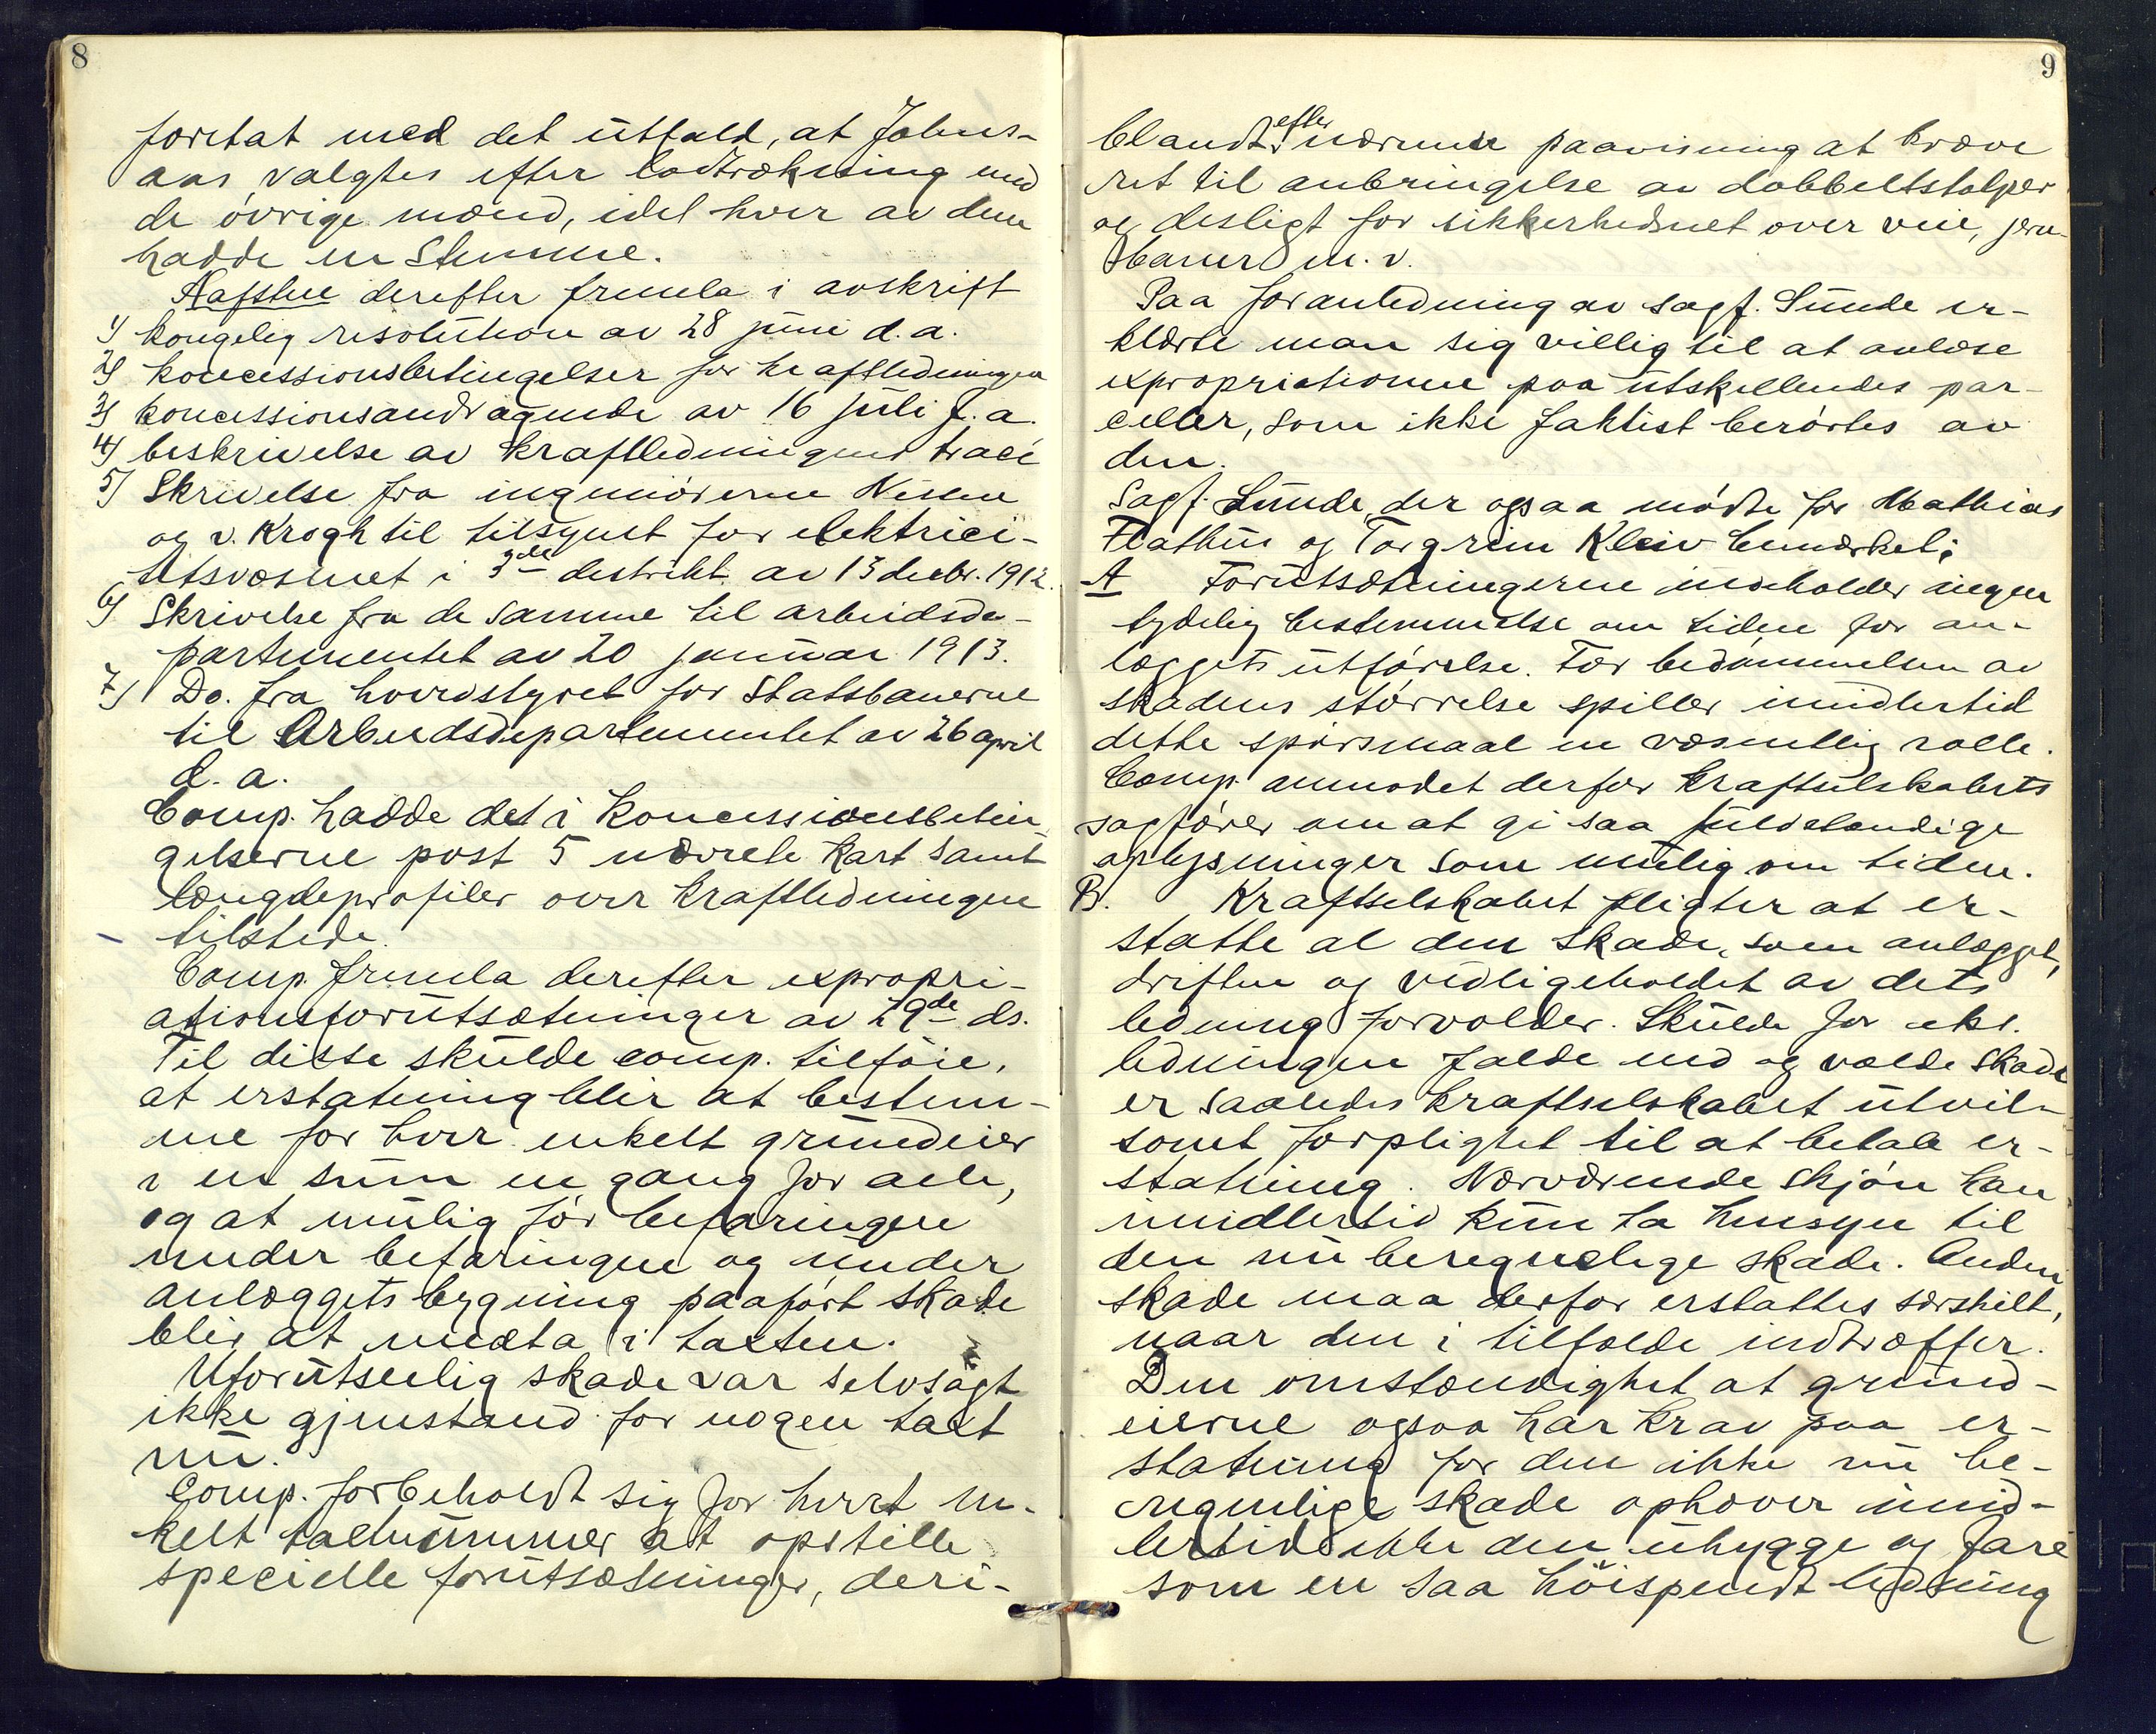 8
foretat med det utfald, at Johns-
aas valgtes efter lodtrækning med
de övrige mænd, idet hver av dem
hadde en Stemme.
Aafsten derefter fremla i avskrift
1) kongelig resolution av 28 juni d.a.
2) koncessionsbetingelser for kraftledningen
3) koncessionsandragende av 16 juli f.a.
4) beskrivelse av kraftledningens tracé
5) Skrivelse fra ingeniörerne Nissen
og v. Krogh til tilsynet for elektrici-
tetsvæsenet i 3die distrikt av 13 decbr. 1912.
6) Skrivelse fra de samme til arbeidsde-
partementet av 20 januar 1913.
7) Do. fra hovedstyret for Statsbanerne
til Arbeidsdepartementet av 26 april
d.a.
Comp. hadde det i koncessionsbetin-
gelserne post 5 nævnte kart samt
længdeprofiler over kraftledningen
tilstede.
Comp. fremla derefter expropri-
ationsforutsætninger av 29de ds.
Til disse skulde comp. tilföie,
at erstatning blir at bestem-
me for hver enkelt grundeier
i en sum en gang for alle,
og at mulig för befaringen
under befaringen og under
anlæggets bygning paafört skade
blir at medta i taxten.
Uforutseelig skade var selvsagt
ikke gjenstand for nogen taxt
nu.
Comp. forbeholdt sig for hvert en-
kelt taxtnummer at opstille
specielle forutsætninger, deri-
9
blandt efter nærmere paavisning at kræve
ret til anbringelse av dobbeltstolper
og desligt for sikkerhedsnet over veie, jern-
baner m.v.
Paa foranledning av sagf. Lunde er-
klærte man sig villig til at avløse
expropriationen paa utskillendes par-
celler, som ikke faktisk berörtes av
den.
Sagf. Lunde, der ogsaa mödte for Mathias
Flathus og Torgrim Kleiv bemærket:
A Forutsætningerne indeholder ingen
tydelig bestemmelse om tiden for an-
læggets utförelse. For bedömmelsen av
skadens störrelse spiller imidlertid
dette spörsmaal en væsentlig rolle.
Comp. anmodet derfor kraftselskabets
sagförer om at gi saa fuldstændige
oplysninger som mulig om tiden.
B. Kraftselskabet pligter at er-
statte al den skade, som anlægget,
driften og vedligeholdet av dets
ledning forvolder. Skulde for eks.
ledningen falde ned og volde skade
er saaledes kraftselskabet utvil-
somt forpligtet til at betale er-
statning. Nærværende skjön kan
imidlertid kun ta hensyn til
den nu beregnelige skade. Anden
skade maa derfor erstattes særskilt,
naar den i tilfælde indtræffer.
Den omstændighet at grund-
eierne ogsaa har krav paa er-
statning for den ikke nu be-
regnelige skade ophæver imid-
lertid ikke den uhygge og fare
som en saa höispendt ledning